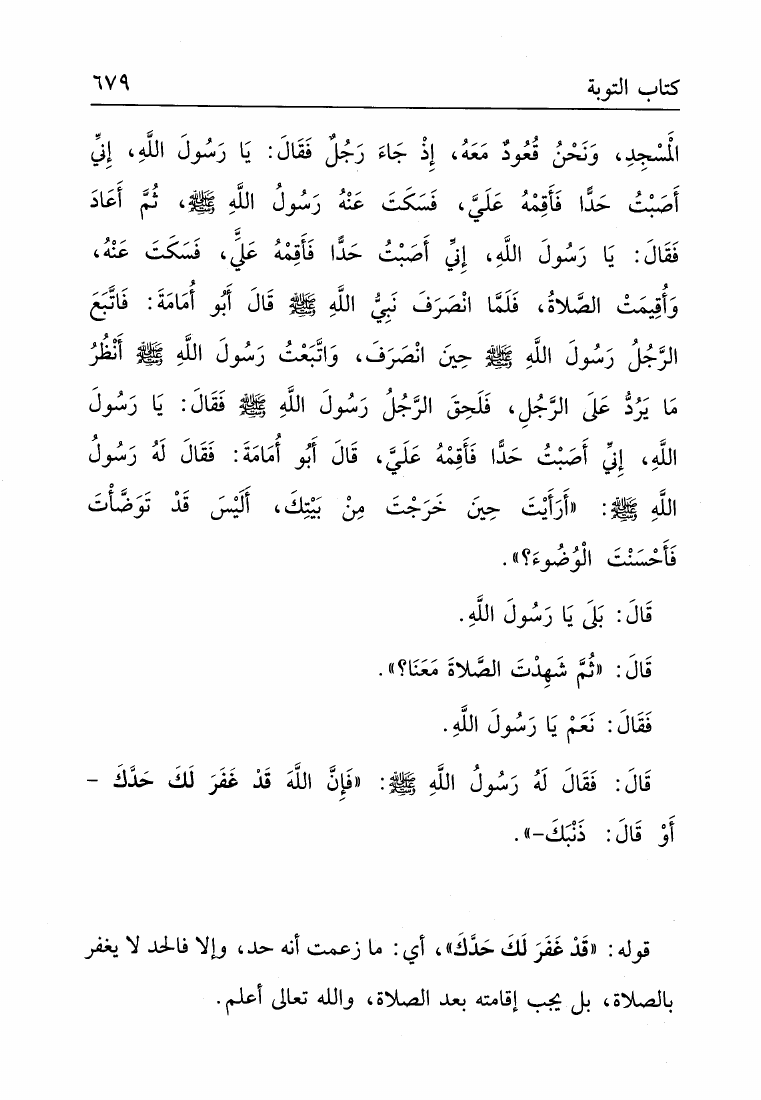 كتاب التوبة ٦٧٩
الْمَسْجِدِ، وَنَحْنُ قُعُودٌ مَعَهُ، إِذْ جَاءَ رَجُلٌ فَقَالَ: يَا رَسُولَ اللَّهِ، إِنِّي
أَصَبْتُ حَدًّا فَأَقِمْهُ عَلَيَّ، فَسَكَتَ عَنْهُ رَسُولُ اللَّهِ ﷺ، ثُمَّ أَعَادَ
فَقَالَ: يَا رَسُولَ اللَّهِ، إِنِّي أَصَبْتُ حَدًّا فَأَقِمْهُ عَلَيَّ، فَسَكَتَ عَنْهُ،
وَأُقِيمَتْ الصَّلَاةُ، فَلَمَّا انْصَرَفَ نَبِيُّ اللَّهِ ﷺ قَالَ أَبُو أُمَامَةَ: فَاتَّبَعَ
الرَّجُلُ رَسُولَ اللَّهِ ﷺ حِينَ انْصَرَفَ، وَاتَّبَعْتُ رَسُولَ اللَّهِ ﷺ أَنْظُرُ
مَا يَرُدُّ عَلَى الرَّجُلِ، فَلَحِقَ الرَّجُلُ رَسُولَ اللَّهِ ﷺ فَقَالَ: يَا رَسُولَ
اللَّهِ، إِنِّي أَصَبْتُ حَدًّا فَأَقِمْهُ عَلَيَّ، قَالَ أَبُو أُمَامَةَ: فَقَالَ لَهُ رَسُولُ
اللَّهِ ﷺ: «أَرَأَيْتَ حِينَ خَرَجْتَ مِنْ بَيْتِكَ، أَلَيْسَ قَدْ تَوَضَّأْتَ
فَأَحْسَنْتَ الْوُضُوءَ؟».
قَالَ: بَلَى يَا رَسُولَ اللَّهِ.
قَالَ: «ثُمَّ شَهِدْتَ الصَّلَاةَ مَعَنَا؟».
فَقَالَ: نَعَمْ يَا رَسُولَ اللَّهِ.
قَالَ: فَقَالَ لَهُ رَسُولُ اللَّهِ ﷺ: «فَإِنَّ اللَّهَ قَدْ غَفَرَ لَكَ حَدَّكَ -
أَوْ قَالَ: ذَنْبَكَ-».
قوله: «قَدْ غَفَرَ لَكَ حَدَّكَ»، أي: ما زعمت أنه حد، وإلا فالحد لا يغفر
بالصلاة، بل يجب إقامته بعد الصلاة، والله تعالى أعلم.